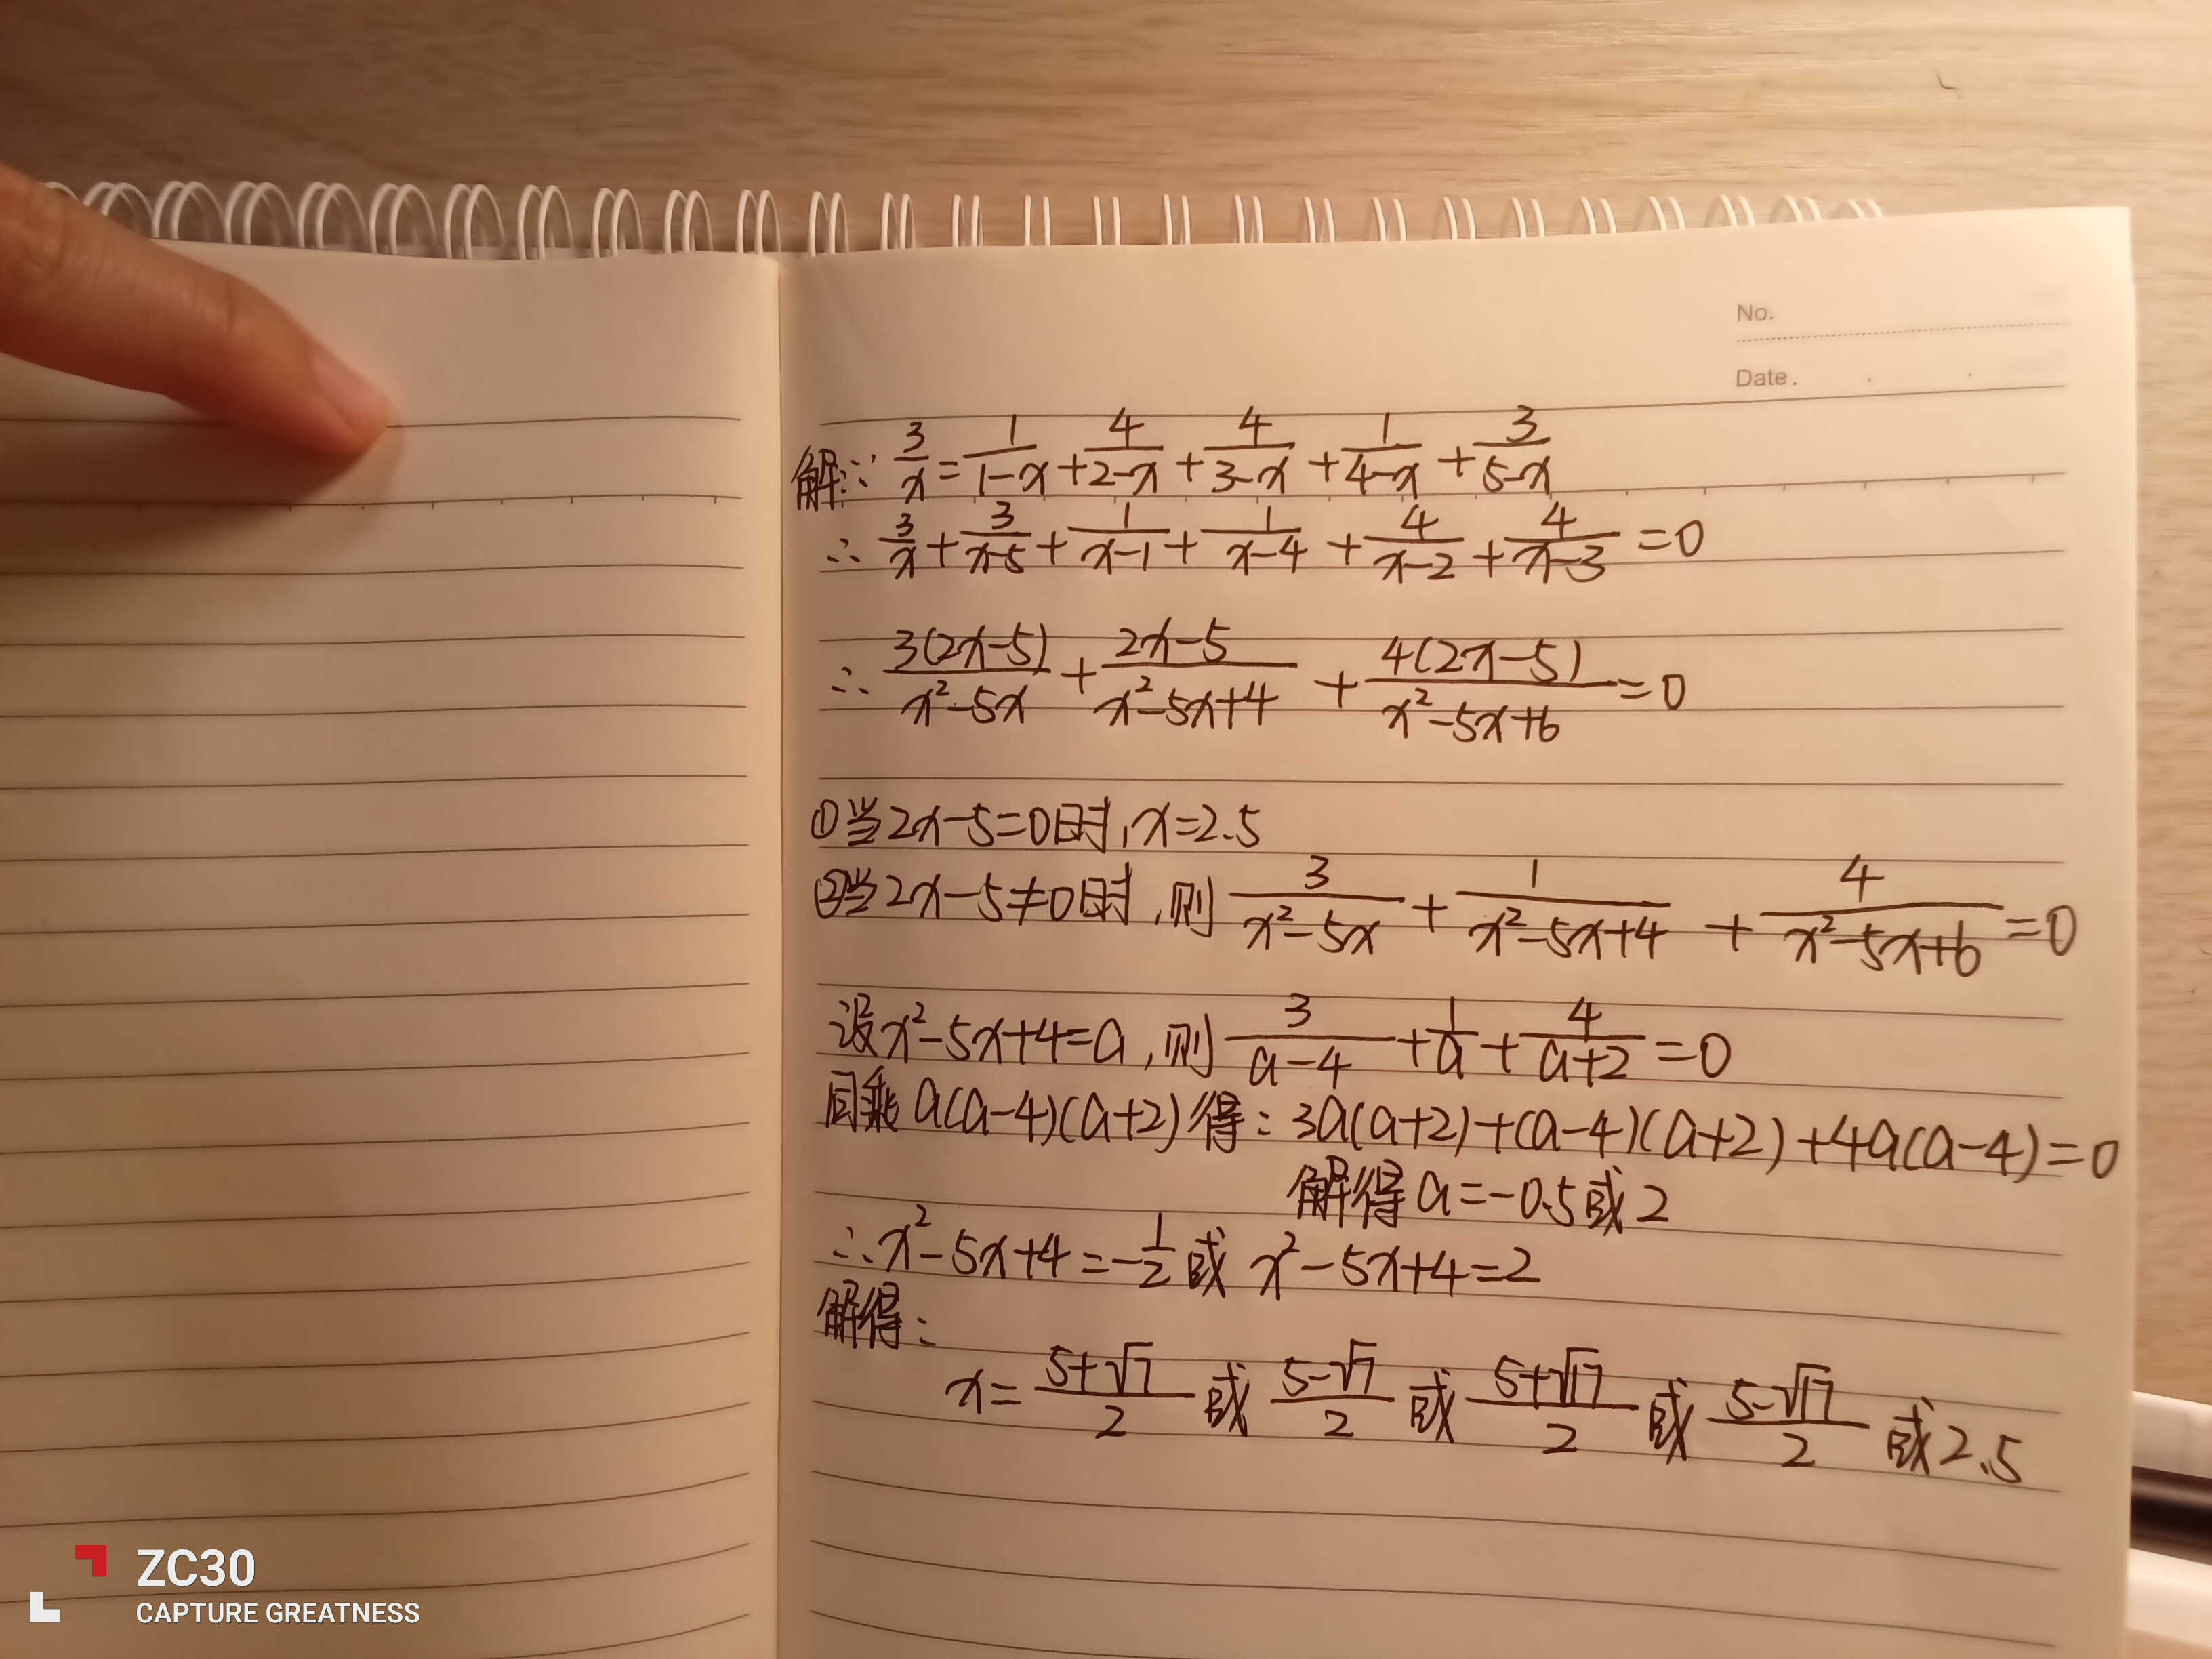 No.
Date.
解:∵ 3/x = 1/(1-x) + 4/(2-x) + 4/(3-x) + 1/(4-x) + 3/(5-x)
∴ 3/x + 3/(x-5) + 1/(x-1) + 1/(x-4) + 4/(x-2) + 4/(x-3) = 0
∴ 3(2x-5)/(x²-5x) + (2x-5)/(x²-5x+4) + 4(2x-5)/(x²-5x+6) = 0
①当2x-5=0时,x=2.5
②当2x-5≠0时,则 3/(x²-5x) + 1/(x²-5x+4) + 4/(x²-5x+6) = 0
设x²-5x+4=a,则 3/(a-4) + 1/a + 4/(a+2) = 0
同乘a(a-4)(a+2)得:3a(a+2)+(a-4)(a+2)+4a(a-4)=0
解得a=-0.5或2
∴x²-5x+4=-1/2或x²-5x+4=2
解得:
x= (5+√7)/2 或 (5-√7)/2 或 (5+√17)/2 或 (5-√17)/2 或2.5
ZC30
CAPTURE GREATNESS